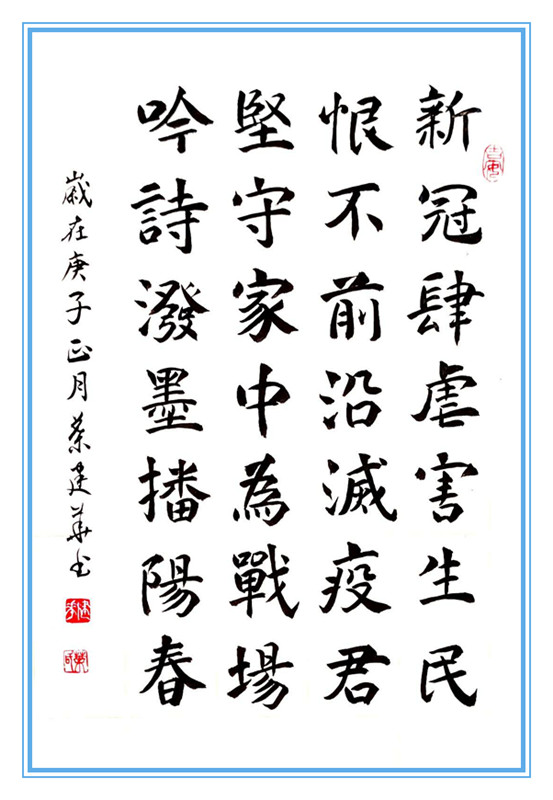 新冠肆虐害生民
恨不前沿滅疫君
堅守家中為戰場
吟詩潑墨播陽春
歲在庚子正月蔡建華书